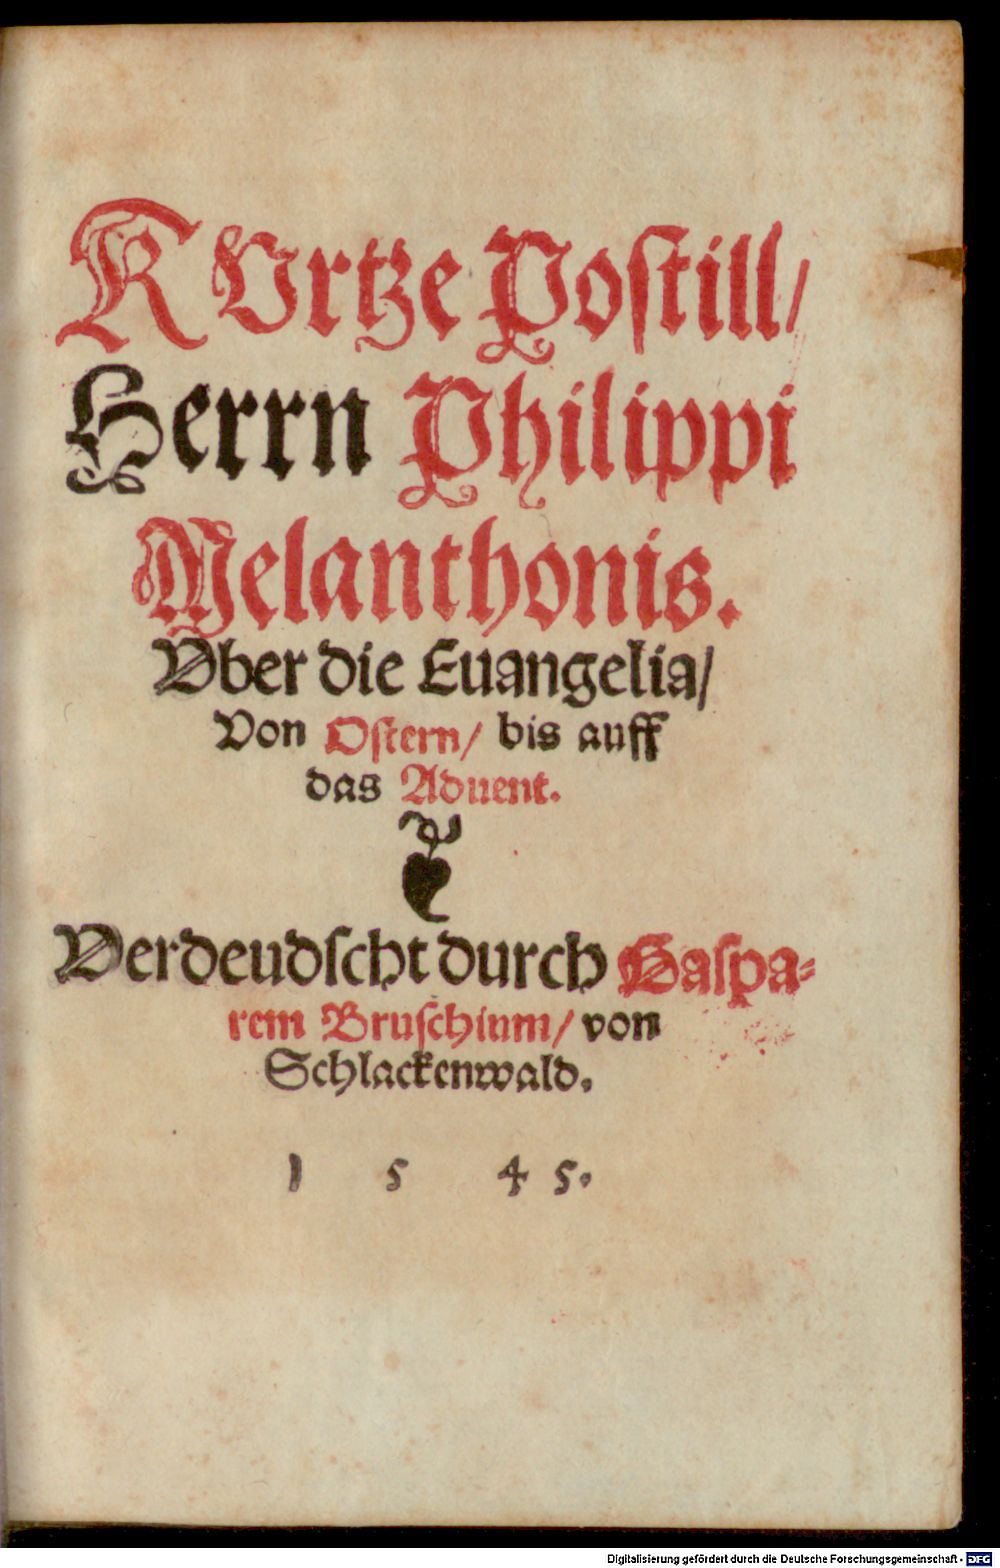 KVrtze Postill/
Herrn Philippi
Melanthonis.
Vber die Euangelia/
Von Ostern/ bis auff
das Aduent.
Verdeudscht durch Gaspa-
rem Bruschium/ von
Schlackenwald.
1 5 4 5.
Digitalisierung gefördert durch die Deutsche Forschungsgemeinschaft - DFG